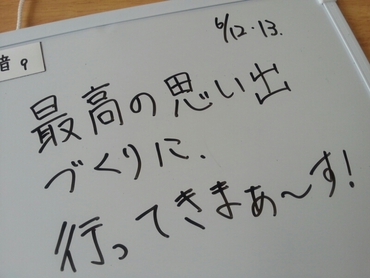 6/12・13.
音9
最高の思い出
づくりに、
行ってきまぁ〜す!